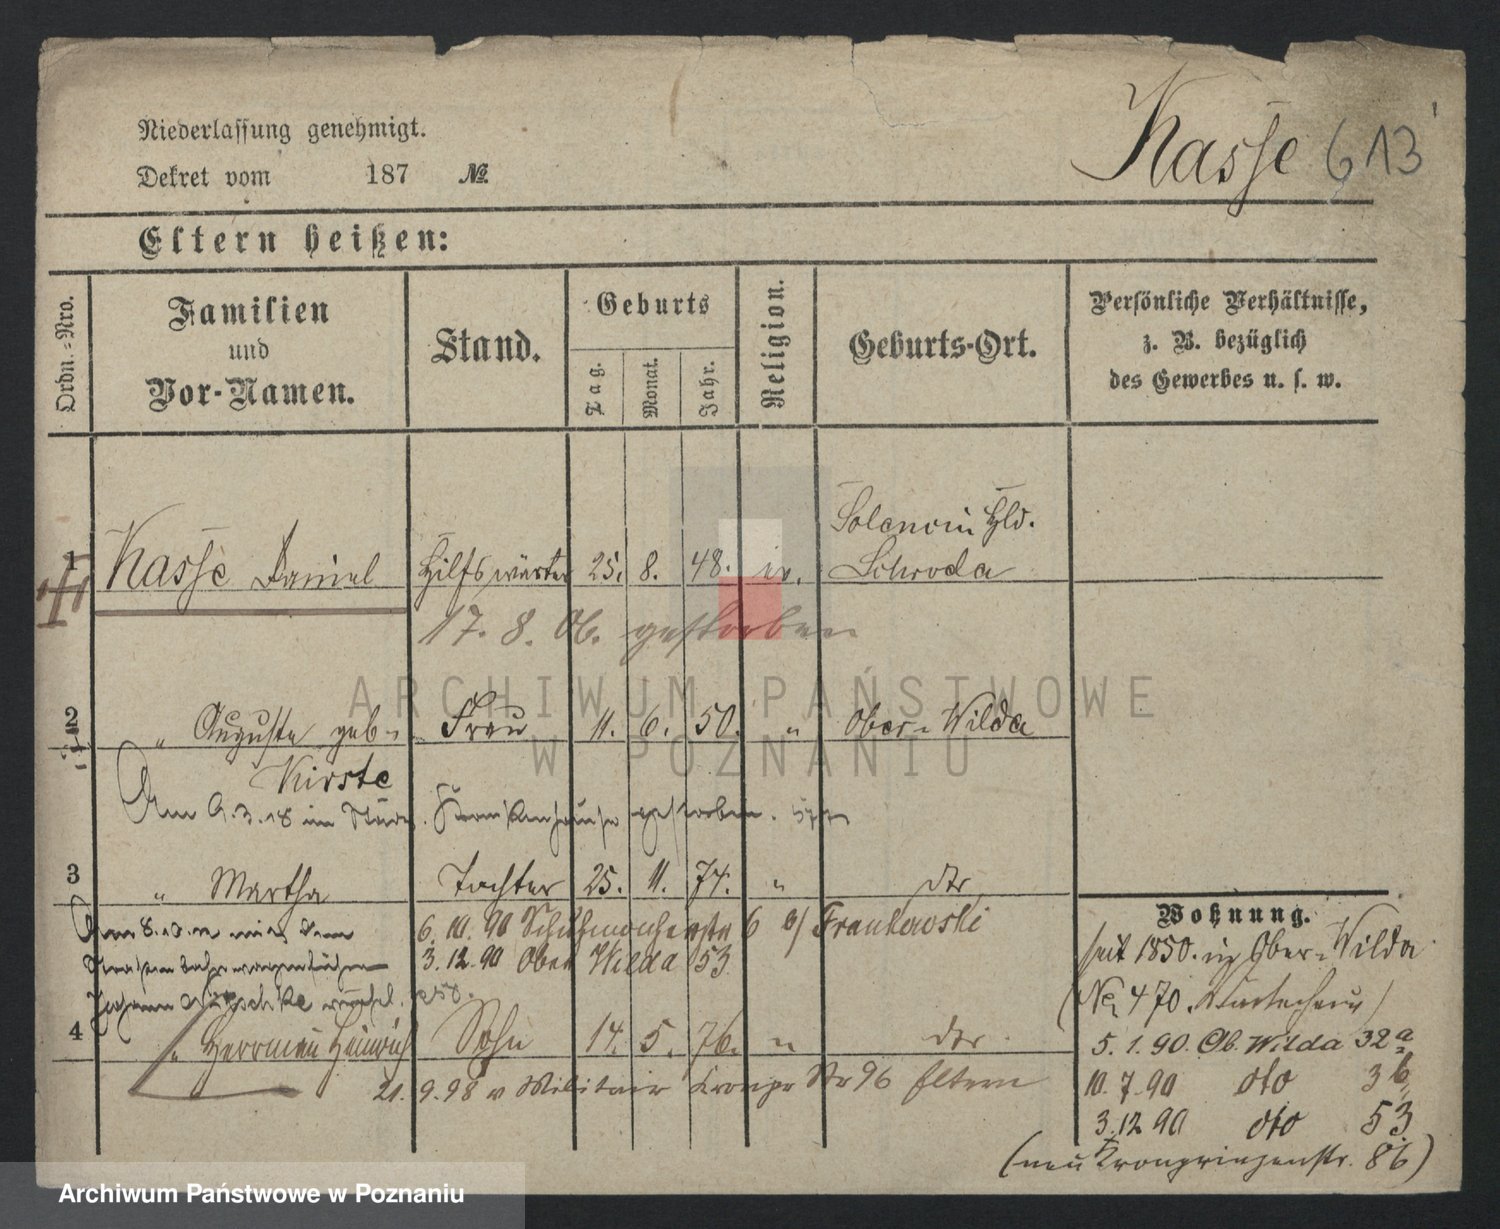 Kasse 613
Niederlassung genehmigt.
Dekret vom 187 №.
Eltern heißen:
Ordn.-Nro.
Familien
und
Vor-Namen.
Stand.
Geburts
Tag.
Monat.
Jahr.
Religion.
Geburts-Ort.
Persönliche Verhältnisse,
z. B. bezüglich
des Gewerbes u. s. w.
1 Kasse Daniel Hilfswärter 25. 8. 48. ev. Hld.
Schroda
17. 8. 06. gestorben
2 " Auguste geb. Frau 11. 6. 50. " Ober-Wilda
Kirste
Am 9.3.18 im gestorben.
3 " Martha Tochter 25. 11. 74. " dto
6. 10. 90 6 b/ Frankowski
3.12.90 Ober Wilda 53
4 " Herrmann Heinrich Sohn 14. 5. 76. " dto
21. 9. 98 v Militair Kronpr Str 96 Eltern
Wohnung.
seit 1850. in Ober-Wilda
(№ 470.
5. 1. 90. Ob. Wilda 32a
10. 7. 90 dto 3b
3.12 90 dto 53
(neu Kronprinzenstr. 86)
ARCHIWUM PAŃSTWOWE
W POZNANIU
Archiwum Państwowe w Poznaniu